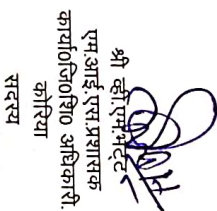 श्री व्ही.एम.भट्ट
एम.आई.एस.प्रशासक
कार्या0जि0शि0 अधिकारी.
कोरिया
सदस्य